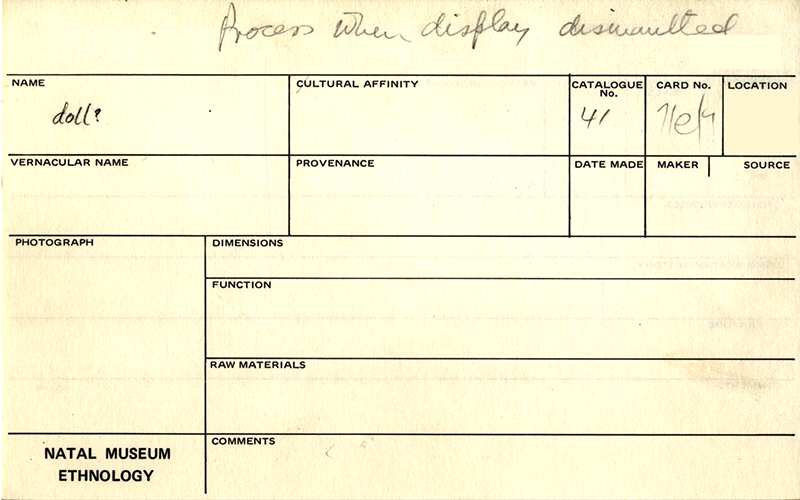 Process when display dismantled
NAME
CULTURAL AFFINITY
CATALOGUE No.
CARD No.
LOCATION
doll?
41
VERNACULAR NAME
PROVENANCE
DATE MADE
MAKER
SOURCE
PHOTOGRAPH
DIMENSIONS
FUNCTION
RAW MATERIALS
COMMENTS
NATAL MUSEUM
ETHNOLOGY